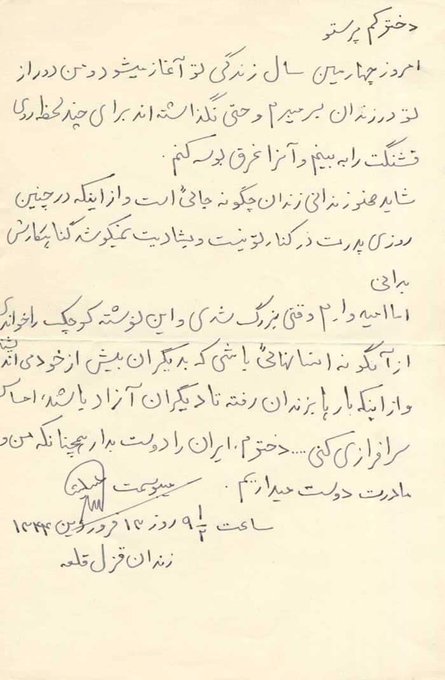 دخترکم پرستو
امروز چهارمین سال زندگی تو آغاز میشود و من دور از
تو در زندان بسر میبرم و حتی نگذاشته اند برای چند لحظه روی
قشنگت را به بینم و آنرا غرق بوسه کنم.
شاید هنوز ندانی زندان چگونه جائی است و از اینکه در چنین
روزی پدرت در کنار تو نیست و بشادیت نمیکوشد گناهکارش
بدانی
اما امیدوارم وقتی بزرگ شدی و این نوشته کوچک را خواندی
از آنگونه انسانهائی باشی که بدیگران بیش از خود می اندیشند
و از اینکه بارها بزندان رفته تا دیگران آزاد باشند، احساس
سرافرازی کنی .... دخترم، ایران را دوست بدار همچنانکه من و
مادرت دوست میداریم.
میبوسمت
ساعت ۹ ۱/۲ روز ۱۲ فروردین ۱۳۴۴
زندان قزل قلعه